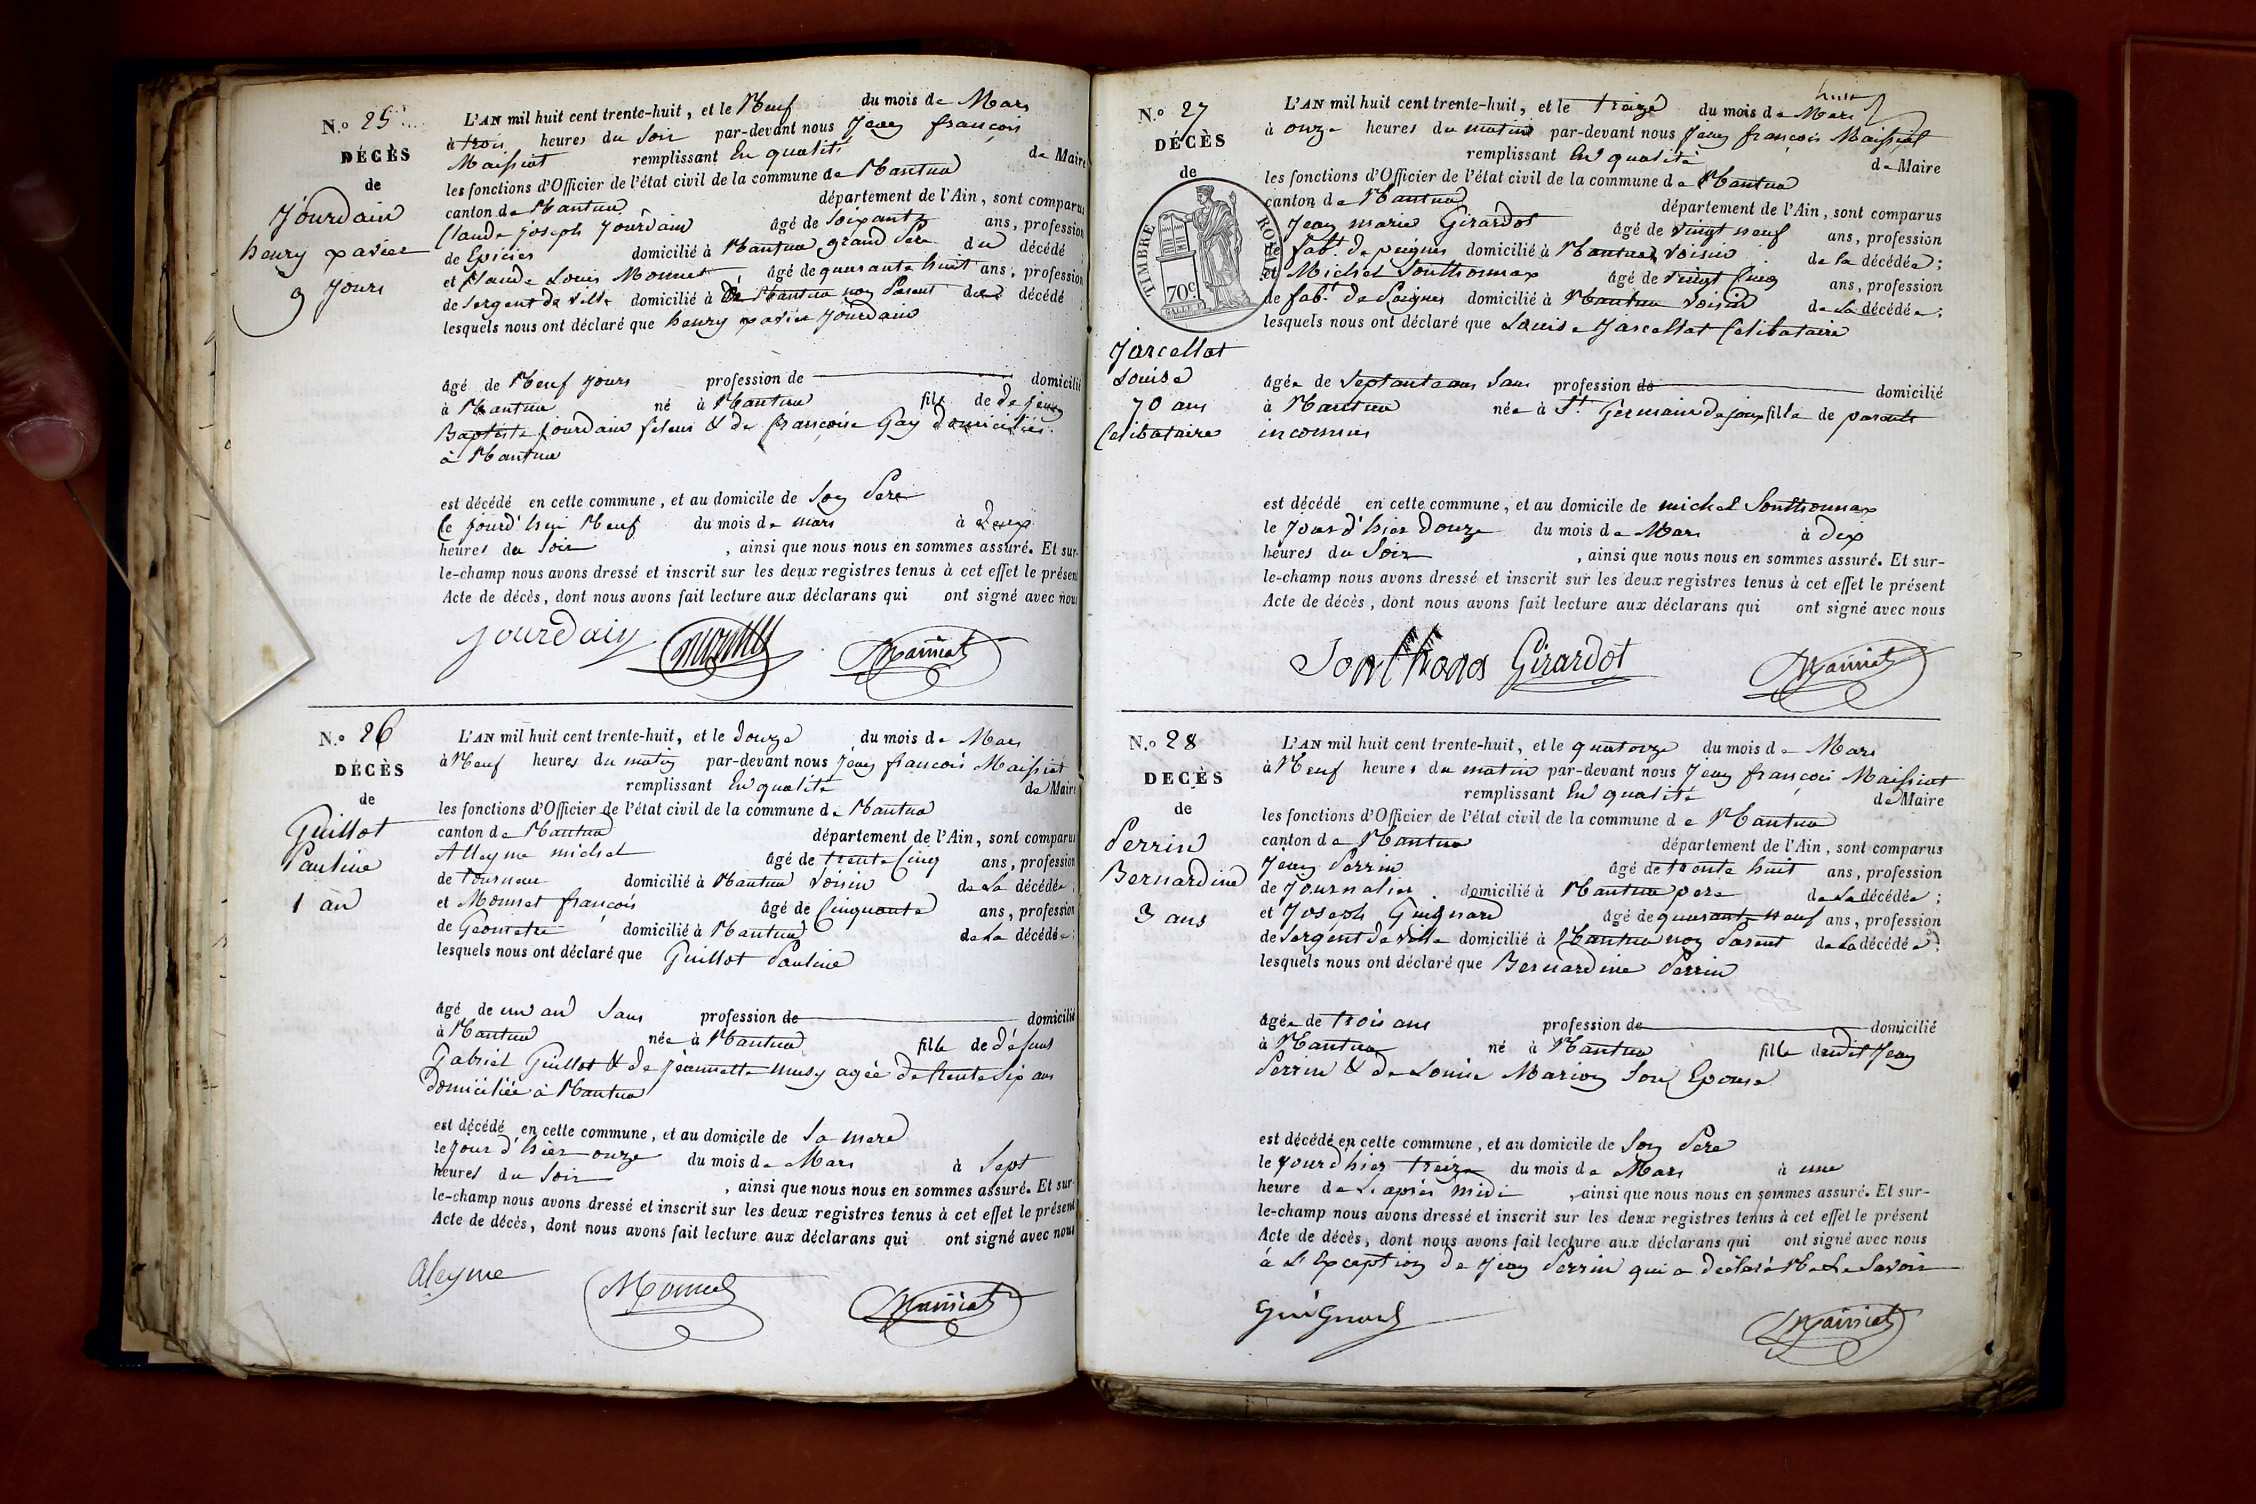 N.o 25
DÉCÈS
de
Jourdain
henry xavier
9 Jours
L'AN mil huit cent trente-huit, et le Neuf du mois de Mars
à trois heures du Soir par-devant nous Jean françois
Maissiat remplissant En qualité de Maire
les fonctions d'Officier de l'état civil de la commune de Nantua
canton de Nantua département de l'Ain, sont comparus
Claude Joseph Jourdain âgé de Soixante ans, profession
de Epicier domicilié à Nantua grand Père du décédé
et Claude Louis Monnet âgé de quarante huit ans, profession
de Sergent de ville domicilié à Nantua non Parent du décédé
lesquels nous ont déclaré que henry xavier Jourdain
âgé de Neuf Jours profession de domicilié
à Nantua né à Nantua fils de de Jean
Baptiste Jourdain & de françoise Gay domiciliés
à Nantua
est décédé en cette commune, et au domicile de Son Père
Ce Jourd'hui Neuf du mois de mars à deux
heures du Soir, ainsi que nous nous en sommes assuré. Et sur-
le-champ nous avons dressé et inscrit sur les deux registres tenus à cet effet le présent
Acte de décès, dont nous avons fait lecture aux déclarans qui ont signé avec nous
Jourdain Monnet Maissiat
N.o 26
DÉCÈS
de
Guillot
Pauline
1 an
L'AN mil huit cent trente-huit, et le douze du mois de Mars
à Neuf heures du matin par-devant nous Jean françois Maissiat
remplissant En qualité de Maire
les fonctions d'Officier de l'état civil de la commune de Nantua
canton de Nantua département de l'Ain, sont comparus
Alleyme michel âgé de trente Cinq ans, profession
de tourneur domicilié à Nantua Voisin de la décédée
et Monnet françois âgé de Cinquante ans, profession
de Géometre domicilié à Nantua de la décédée
lesquels nous ont déclaré que Guillot Pauline
âgé de un an Sans profession de domicilié
à Nantua née à Nantua fille de défunt
Gabriel Guillot & de Jeannette Musy agée de trente Six ans
Domiciliée à Nantua
est décédé en cette commune, et au domicile de Sa mere
le Jour d'hier onze du mois de Mars à Sept
heures du Soir, ainsi que nous nous en sommes assuré. Et sur-
le-champ nous avons dressé et inscrit sur les deux registres tenus à cet effet le présent
Acte de décès, dont nous avons fait lecture aux déclarans qui ont signé avec nous
aleyme Monnet Maissiat
N.o 27
DÉCÈS
de
TIMBRE ROYAL
70c
Jarcellot
Louise
70 ans
Celibataire
L'AN mil huit cent trente-huit, et le treize du mois de Mars
à onze heures du matin par-devant nous Jean françois Maissiat
remplissant En qualité de Maire
les fonctions d'Officier de l'état civil de la commune de Nantua
canton de Nantua département de l'Ain, sont comparus
Jean marie Girardot âgé de vingt neuf ans, profession
de fabt. de peignes domicilié à Nantua Voisin de la décédée;
et Michel Sonthonnax âgé de vingt Cinq ans, profession
de fabt. de Peignes domicilié à Nantua Voisin de la décédée;
lesquels nous ont déclaré que Louise Jarcellot Celibataire
âgée de Septante ans Sans profession de domicilié
à Nantua née à St. Germain de Joux fille de parents
inconnus
est décédé en cette commune, et au domicile de michel Sonthonnax
le Jour d'hier Douze du mois de Mars à dix
heures du Soir, ainsi que nous nous en sommes assuré. Et sur-
le-champ nous avons dressé et inscrit sur les deux registres tenus à cet effet le présent
Acte de décès, dont nous avons fait lecture aux déclarans qui ont signé avec nous
Girardot Maissiat
N.o 28
DECÈS
de
Perrin
Bernardine
3 ans
L'AN mil huit cent trente-huit, et le quatorze du mois de Mars
à Neuf heures du matin par-devant nous Jean françois Maissiat
remplissant En qualité de Maire
les fonctions d'Officier de l'état civil de la commune de Nantua
canton de Nantua département de l'Ain, sont comparus
Jean Perrin âgé de trente huit ans, profession
de Journalier domicilié à Nantua pere de la décédée;
et Joseph Guignard âgé de quarante neuf ans, profession
de Sergent de ville domicilié à Nantua non Parent de la décédée;
lesquels nous ont déclaré que Bernardine Perrin
âgée de trois ans profession de domicilié
à Nantua né à Nantua fille dudit Jean
Perrin & de Louise Marion Son Epouse
est décédé en cette commune, et au domicile de Son Père
le Jourd'hier treize du mois de Mars à une
heure de L'après midi, ainsi que nous nous en sommes assuré. Et sur-
le-champ nous avons dressé et inscrit sur les deux registres tenus à cet effet le présent
Acte de décès, dont nous avons fait lecture aux déclarans qui ont signé avec nous
à L'Exception de Jean Perrin qui a déclaré Ne Le Savoir
Guignard Maissiat